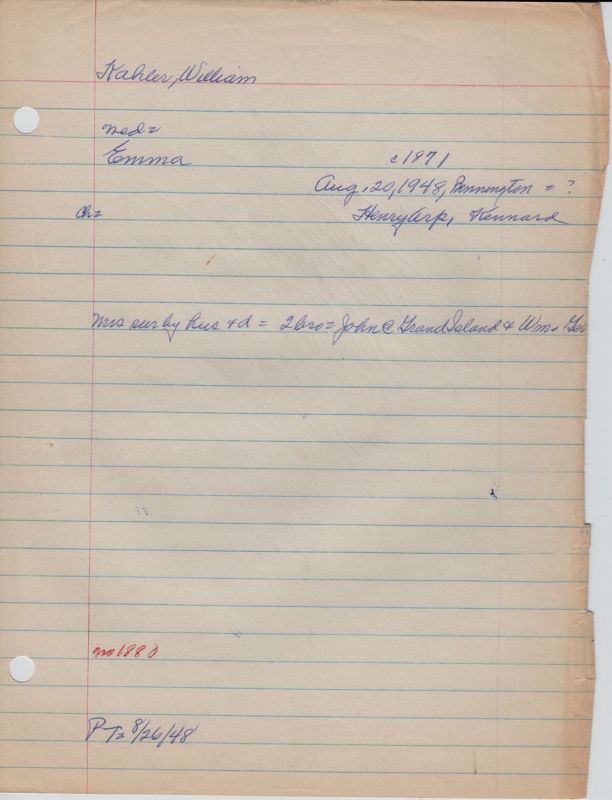 Kahler, William
med=
Emma c1871
Aug. 20, 1948, Bennington = ?
ch= Henry Arp, Kennard
Mrs sur by hus & d = 2 bro = John @ Grand Island & Wm.
no 1880
PT= 8/26/48